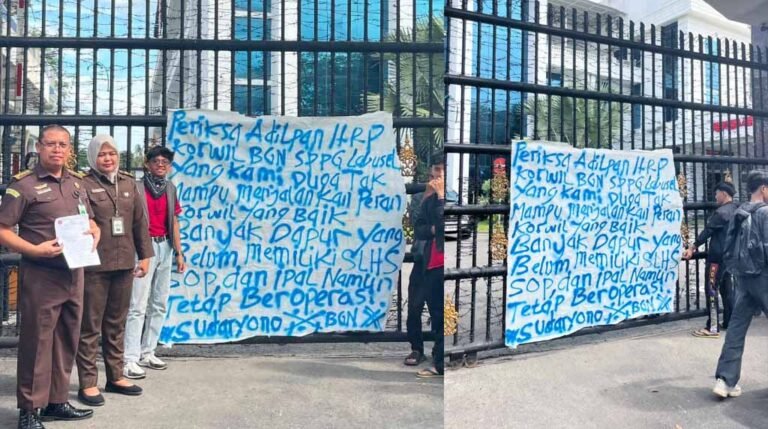 Periksa Adilpan HRP
Korwil BGN SPPG Labusel
Yang Kami Duga Tak
Mampu Menjalankan Peran
Korwil Yang Baik
Banyak Dapur Yang
Belum Memiliki SLHS
SOP dan IPAL Namun
Tetap Beroperasi
#Sudaryono BGN
Periksa Adilpan HRP
Korwil BGN SPPG Labusel
Yang Kami Duga Tak
Mampu Menjalankan Peran
Korwil Yang Baik
Banyak Dapur Yang
Belum Memiliki SLHS
SOP dan IPAL Namun
Tetap Beroperasi
#Sudaryono BGN